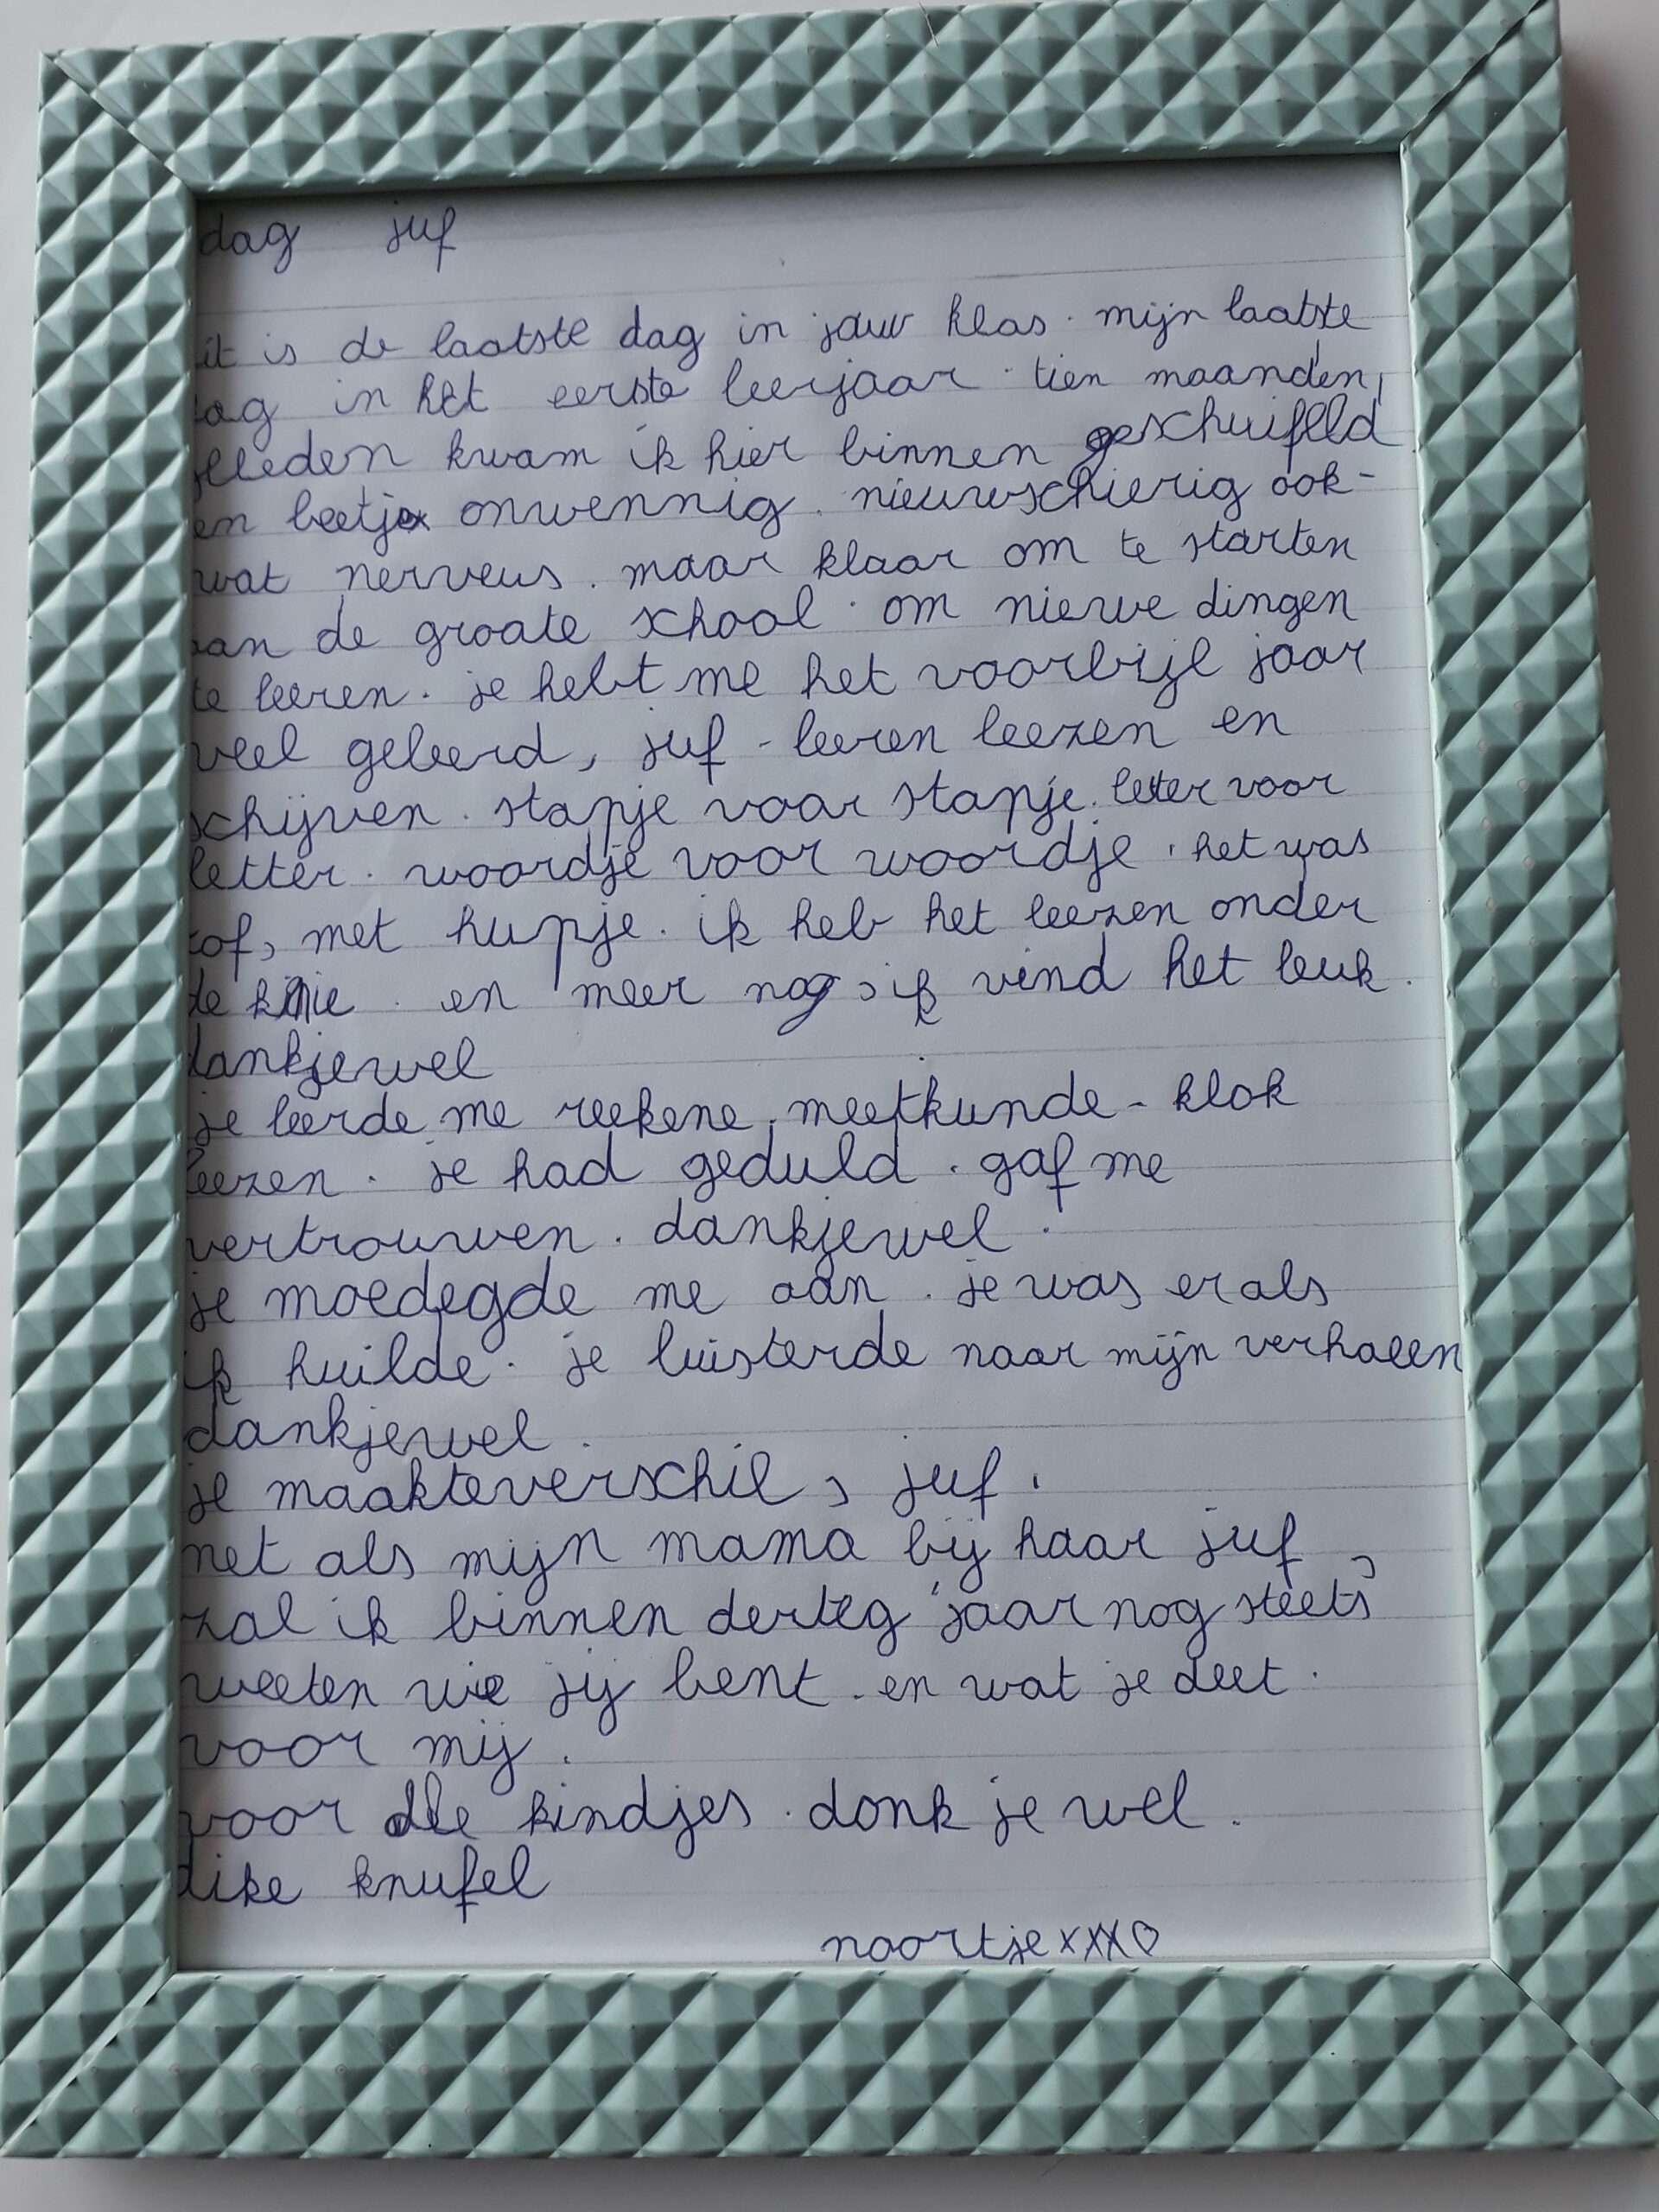 dag juf
it is de laatste dag in jouw klas. mijn laatste
ag in het eerste leerjaar. tien maanden
lleden kwam ik hier binnen geschuifeld
en beetje onwennig. nieuwschierig ook-
wat nerveus. maar klaar om te starten
aan de groote school. om niewe dingen
te leeren. je hebt me het voorbije jaar
veel geleerd, juf - leeren leezen en
schijven. stapje voor stapje. letter voor
letter. woordje voor woordje. het was
tof, met hupje. ik heb het leezen onder
de knie. en meer nog, ik vind het leuk.
dankjewel
je leerde me reekene, meetkunde - klok
leezen. je had geduld. gaf me
vertrouwen. dankjewel.
je moedegde me aan. je was er als
ik huilde. je luisterde naar mijn verhaeen
dankjewel.
je maakteverschil, juf.
net als mijn mama bij haar juf,
zal ik binnen derteg jaar nog steets
weeten wie jij bent. en wat je deet.
voor mij.
voor alle kindjes. donk je wel.
dike knufel
noortje xxx♡